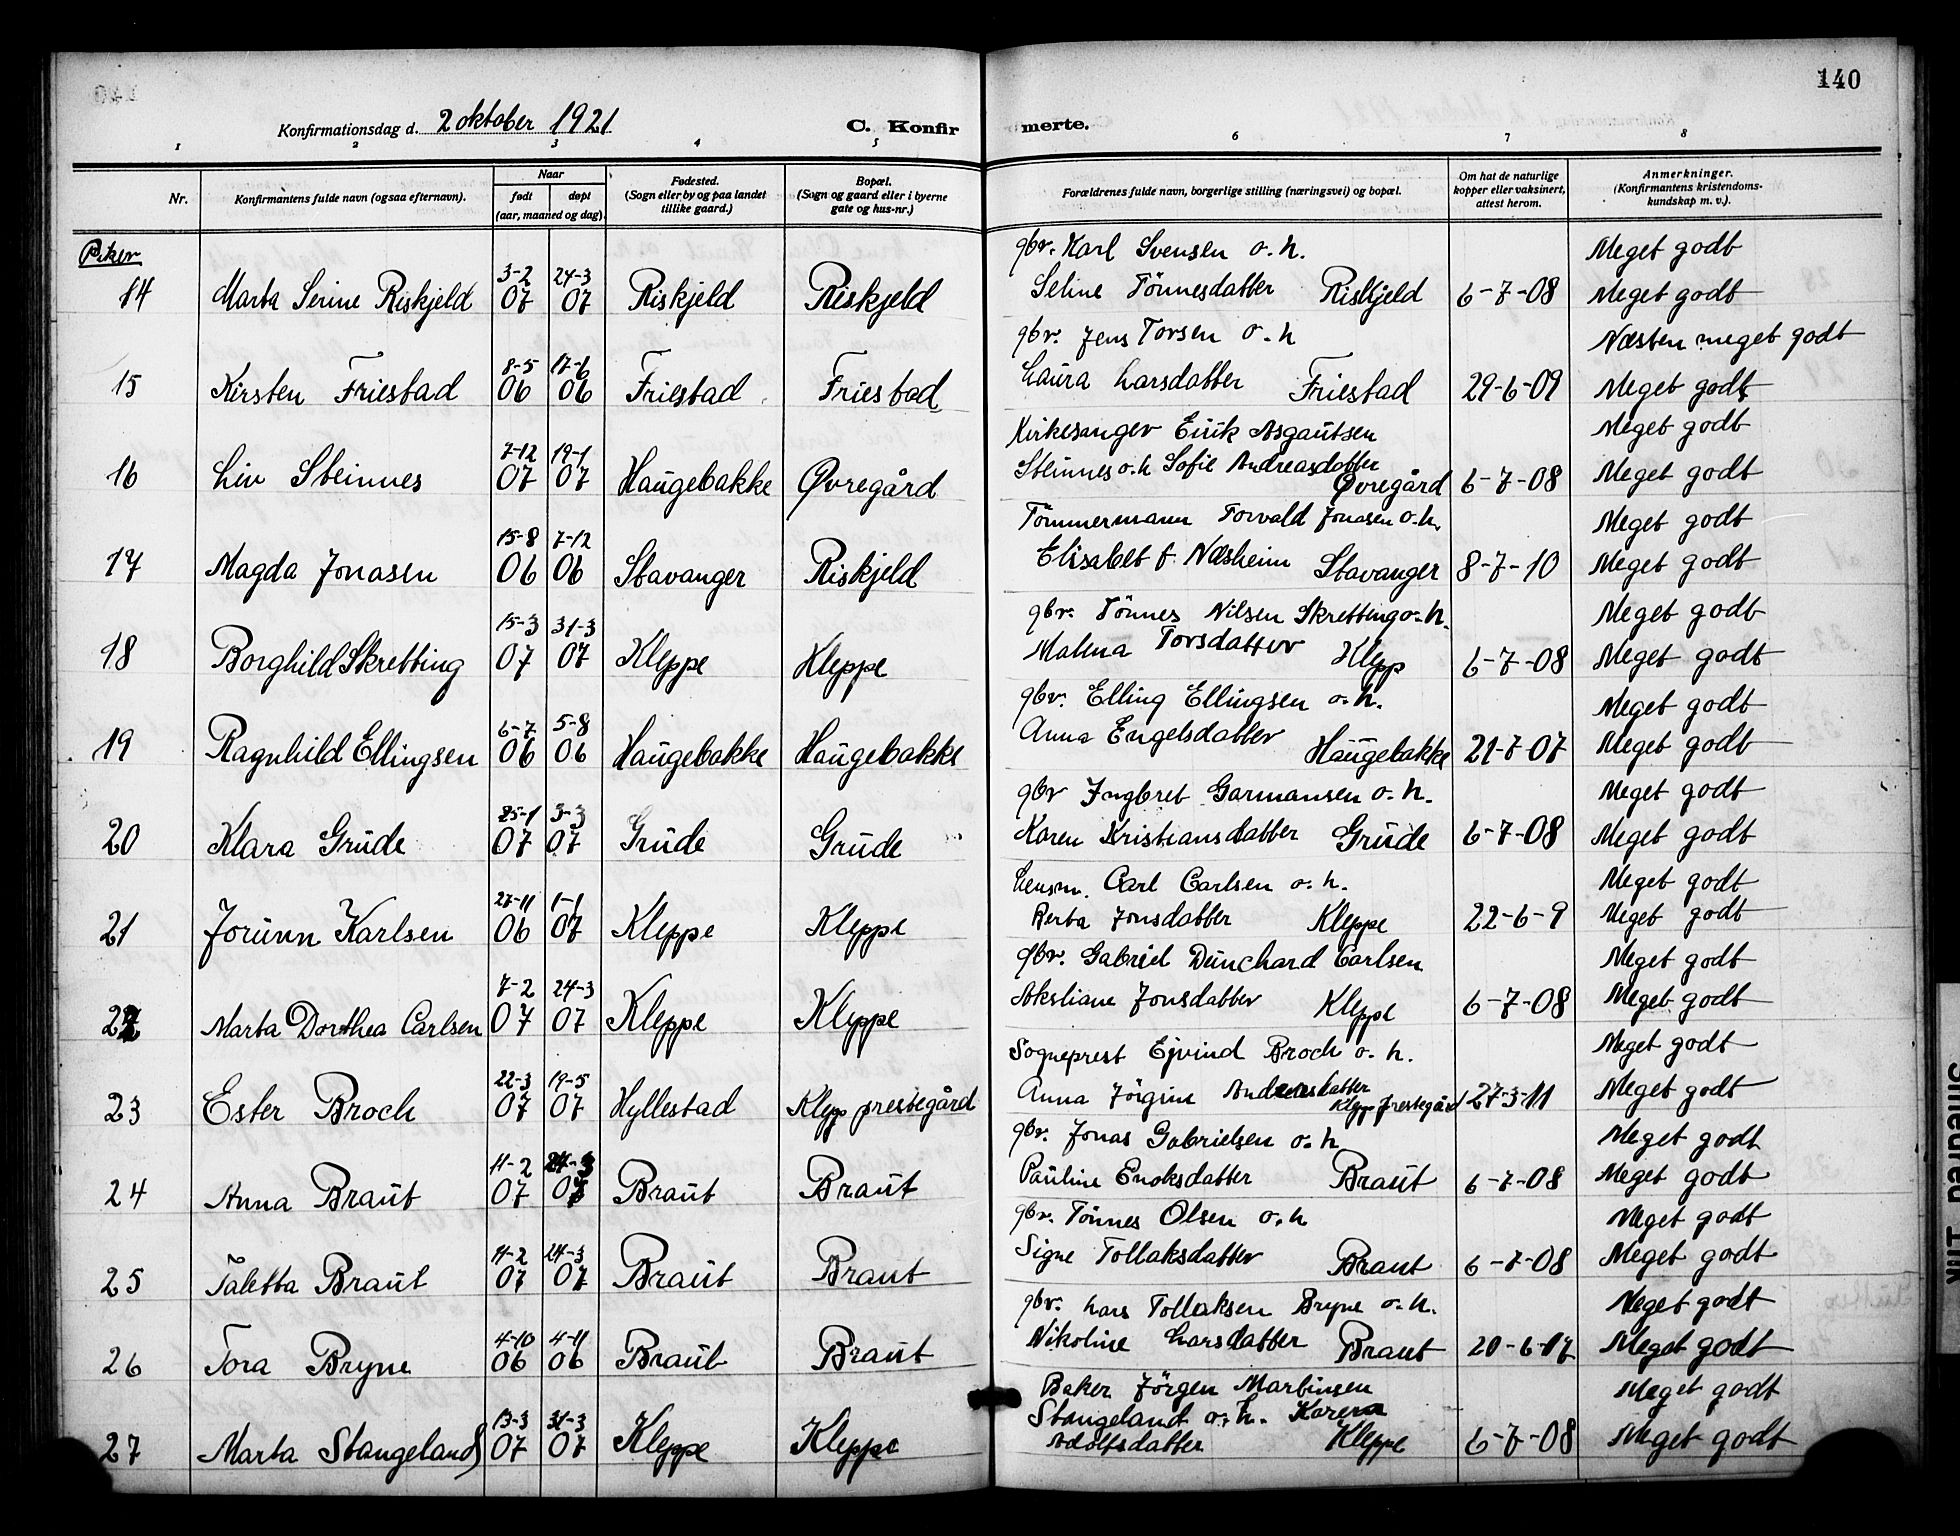 140
Konfirmationsdag d. 2 oktober 1921 C. Konfir merte.
1 2 3 4 5 6 7 8
Nr. Konfirmantens fulde navn (ogsaa efternavn). Naar født døpt (aar, maaned og dag). Fødested. (Sogn eller by og paa landet tillike gaard.) Bopæl. (Sogn og gaard eller i byerne gate og hus-nr.) Forældrenes fulde navn, borgerlige stilling (næringsvei) og bopæl. Om hat de naturlige kopper eller vaksinert, attest herom. Anmerkninger. (Konfirmantens kristendoms- kundskap m. v.).
Piker
gbr. Karl Svensen o. h. Meget godt
14 Marta Serine Riskjeld 3-2 07 24-3 07 Riskjeld Riskjeld Seline Tönnesdatter Riskjeld 6-7-08 Meget godt
gbr. Jens Torsen o. h Næsten meget godt
15 Kirsten Friestad 8-5 06 17-6 06 Friestad Friestad Laura Larsdatter Friestad 29-6-09 Meget godt
Kirkesanger Eirik Asgautsen Meget godt
16 Liv Steinnes 7-12 07 19-1 07 Haugebakke Øvregård Steinnes o. h Sofie Andreasdatter Øvregård 6-7-08 Meget godt
Tömmermann Torvald Jonasen o. h. Meget godt
17 Magda Jonasen 15-8 06 7-12 06 Stavanger Riskjeld Elisabet f. Næsheim Stavanger 8-7-10 Meget godt
gbr. Tönnes Nilsen Skretting o. h. Meget godt
18 Borghild Skretting 15-3 07 31-3 07 Kleppe Kleppe Malena Torsdatter Klepp 6-7-08 Meget godt
gbr. Elling Ellingsen o. h. Meget godt
19 Ragnhild Ellingsen 6-7 06 5-8 06 Haugebakke Haugebakke Anna Engelsdatter Haugebakke 21-7-07 Meget godt
gbr Ingbret Garmansen o. h. Meget godt
20 Klara Grude 25-1 07 3-3 07 Grude Grude Karen Kristiansdatter Grude 6-7-08 Meget godt
Lensm. Carl Carlsen o. h. Meget godt
21 Jorunn Karlsen 27-11 06 1-1 07 Kleppe Kleppe Berta Jonsdatter Kleppe 22-6-9 Meget godt
gbr. Gabriel Dunchard Carlsen Meget godt
22 Marta Dorthea Carlsen 7-2 07 24-3 07 Kleppe Kleppe Aksliane Jonsdatter Kleppe 6-7-08 Meget godt
Sogneprest Ejvind Broch o. h. Meget godt
23 Ester Broch 22-3 07 19-5 07 Hyllestad Klepp prestegård Anna Jörgine Andreasdatter Klepp prestegård 27-3-11 Meget godt
gbr. Jonas Gabrielsen o. h. Meget godt
24 Anna Braut 11-2 07 24-3 07 Braut Braut Pauline Enoksdatter Braut 6-7-08 Meget godt
gbr. Tönnes Olsen o. h Meget godt
25 Taletta Braut 11-2 07 24-3 07 Braut Braut Signe Tollaksdatter Braut 6-7-08 Meget godt
gbr. Lars Tollaksen Bryne o. h. Meget godt
26 Tora Bryne 4-10 06 4-11 06 Braut Braut Nikoline Larsdatter Braut 20-6-17 Meget godt
Baker Jörgen Martinsen Meget godt
Stangeland o. h. Karen
27 Marta Stangeland 13-3 07 31-3 07 Kleppe Kleppe Adolfsdatter Kleppe 6-7-08 Meget godt